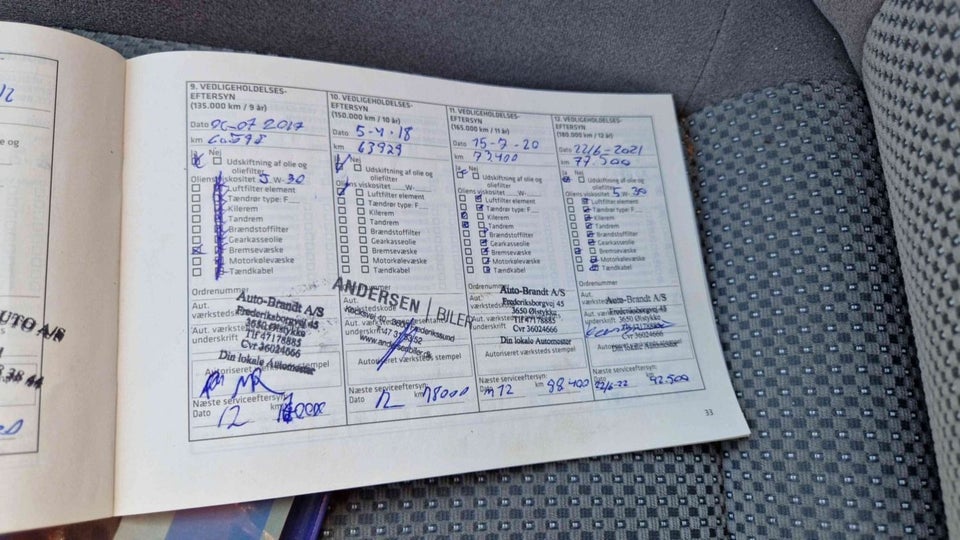 9. VEDLIGEHOLDELSES-
EFTERSYN
(135.000 km / 9 år)
Dato 06-07 2017
km
Nej
Udskiftning af olie og
oliefilter
Oliens viskositet 5 W-30
Luftfilter element
Tændrør type: F
Kilerem
Tandrem
Brændstoffilter
Gearkasseolie
Bremsevæske
Motorkølevæske
Tændkabel
Ordrenummer
Aut.
værkstedskode
Aut. værkst
underskrift
Auto-Brandt A/S
Frederiksborgvej 45
3650 Ølstykke
Tlf 47178885
Cvr 36024666
Din lokale Automester
Autoriseret værksteds stempel
Næste serviceeftersyn:
Dato km
12
10. VEDLIGEHOLDELSES-
EFTERSYN
(150.000 km / 10 år)
Dato 5-4-18
km 63929
Nej
Udskiftning af olie og
oliefilter
Oliens viskositet W-
Luftfilter element
Tændrør type: F
Kilerem
Tandrem
Brændstoffilter
Gearkasseolie
Bremsevæske
Motorkølevæske
Tændkabel
Ordrenummer
Aut.
værkstedskode
Aut. værkst
underskrift
ANDERSEN | BILER
Frederikssund
www.andersenbiler.dk
Autoriseret værksteds stempel
Næste serviceeftersyn:
Dato km
12 78000
11. VEDLIGEHOLDELSES-
EFTERSYN
(165.000 km / 11 år)
Dato 15-7-20
km 73400
Ja Nej
Udskiftning af olie og
oliefilter
Oliens viskositet W-
Luftfilter element
Tændrør type: F
Kilerem
Tandrem
Brændstoffilter
Gearkasseolie
Bremsevæske
Motorkølevæske
Tændkabel
Ordrenummer
Aut.
værkstedskode
Aut. værkst
underskrift
Auto-Brandt A/S
Frederiksborgvej 45
3650 Ølstykke
Tlf 47178885
Cvr 36024666
Din lokale Automester
Autoriseret værksteds stempel
Næste serviceeftersyn:
Dato km
m 12 88400
12. VEDLIGEHOLDELSES-
EFTERSYN
(180.000 km / 12 år)
Dato 22/6-2021
km 77.500
Ja Nej
Udskiftning af olie og
oliefilter
Oliens viskositet 5 W-30
Luftfilter element
Tændrør type: F
Kilerem
Tandrem
Brændstoffilter
Gearkasseolie
Bremsevæske
Motorkølevæske
Tændkabel
Ordrenummer
Aut.
værkstedskode
Aut. værkst
underskrift
Auto-Brandt A/S
Frederiksborgvej 45
3650 Ølstykke
Tlf 47178885
Cvr 36024666
Din lokale Automester
Autoriseret værksteds stempel
Næste serviceeftersyn:
Dato km
22/6-22 92.500
33